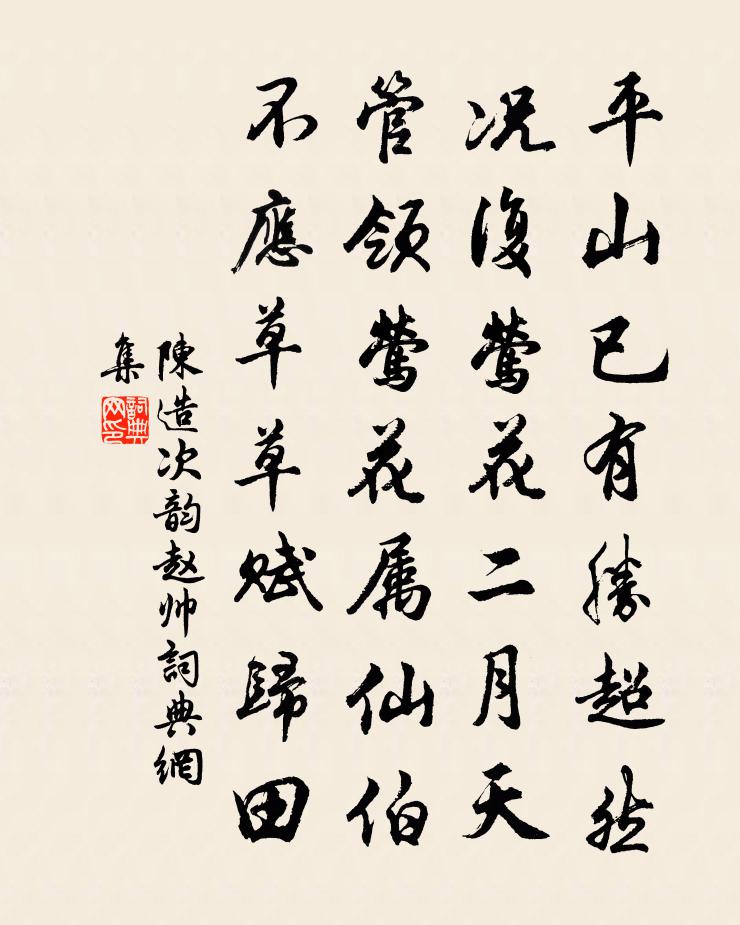 平山已有勝超然
况復鶯花二月天
管領鶯花属仙伯
不應草草賦歸田
陳造次韵赵帅詞典網
集
詞典网印